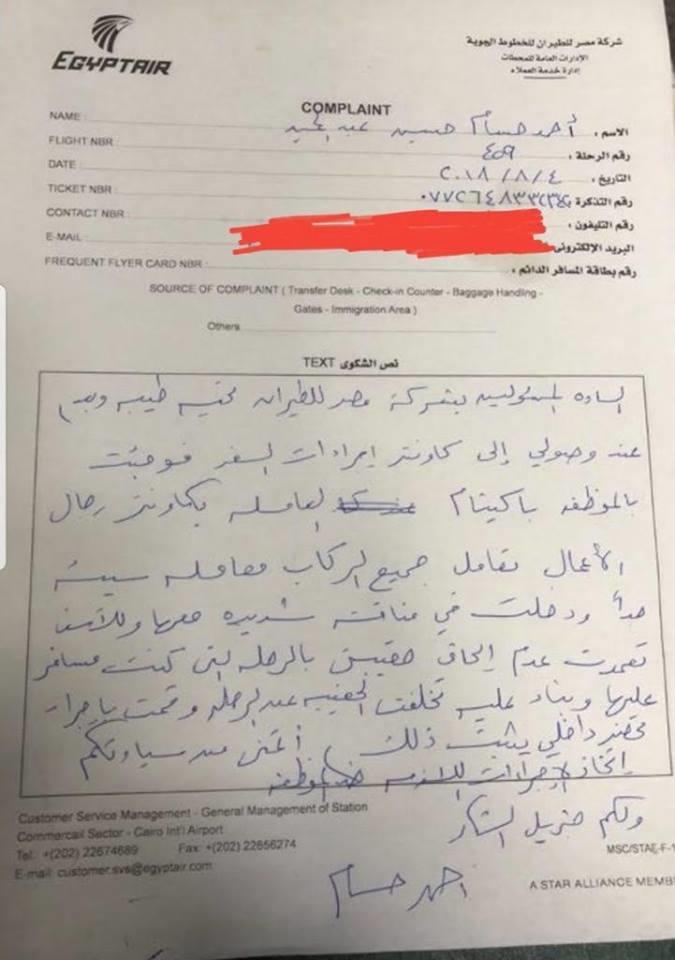 EGYPTAIR
شركة مصر للطيران للخطوط الجوية
الإدارات العامة للمحطات
إدارة خدمة العملاء
COMPLAINT
NAME : أحمد حسام حسين عبد الاسم :
FLIGHT NBR : ٤٥٩ رقم الرحلة :
DATE : ٢٠١٨/٨/٤ التاريخ :
TICKET NBR : رقم التذكرة :
CONTACT NBR : رقم التليفون :
E-MAIL : البريد الإلكترونى
FREQUENT FLYER CARD NBR : رقم بطاقة المسافر الدائم :
SOURCE OF COMPLAINT ( Transfer Desk - Check-in Counter - Baggage Handling -
Gates - Immigration Area )
Others
TEXT نص الشكوى
الساده المسئولين بشركة مصر للطيران تحيه طيبه وبعد
عند وصولي إلى كاونتر إجراءات السفر فوجئت
بالموظفه باكينام العامله بكاونتر رجال
الأعمال تعامل جميع الركاب معامله سيئه
جداً ودخلت في مناقشه شديده معها وللأسف
تعمدت عدم إلحاق حقيبتى بالرحله التى كنت مسافر
عليها وبناء عليه تخلفت الحقيبه عن الرحله وقمت بإجراء
محضر داخلي يثبت ذلك أتمنى من سيادتكم
إتخاذ الإجراءات اللازمه ضد الموظفه
ولكم جزيل الشكر
أحمد حسام
Customer Service Management - General Management of Station
Commercail Sector - Cairo Int'l Airport
Tel: +(202) 22674689 Fax: +(202) 22656274
E-mail: customer.svs@egyptair.com
MSC/STAE-F-1
A STAR ALLIANCE MEMB